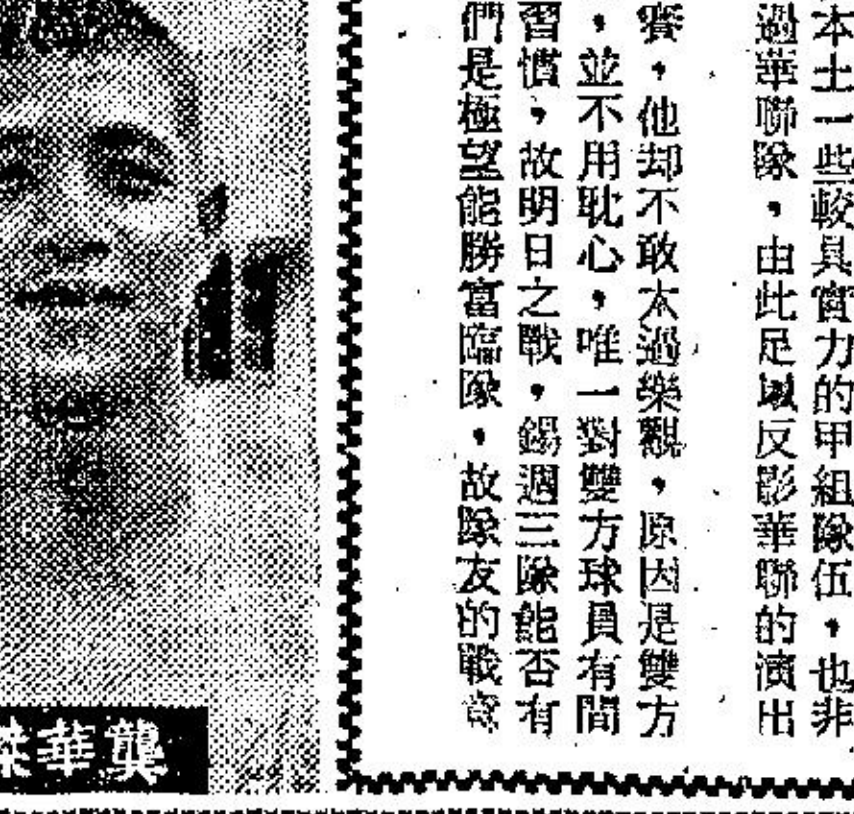 本土一些較具實力的甲組隊伍，也非
過華聯隊，由此足以反影華聯的演出
賽，他却不敢太過樂觀，原因是雙方
，並不用耽心，唯一對雙方球員有間
習慣，故明日之戰，錫週三隊能否有
們是極望能勝富臨隊，故隊友的戰
龔華傑